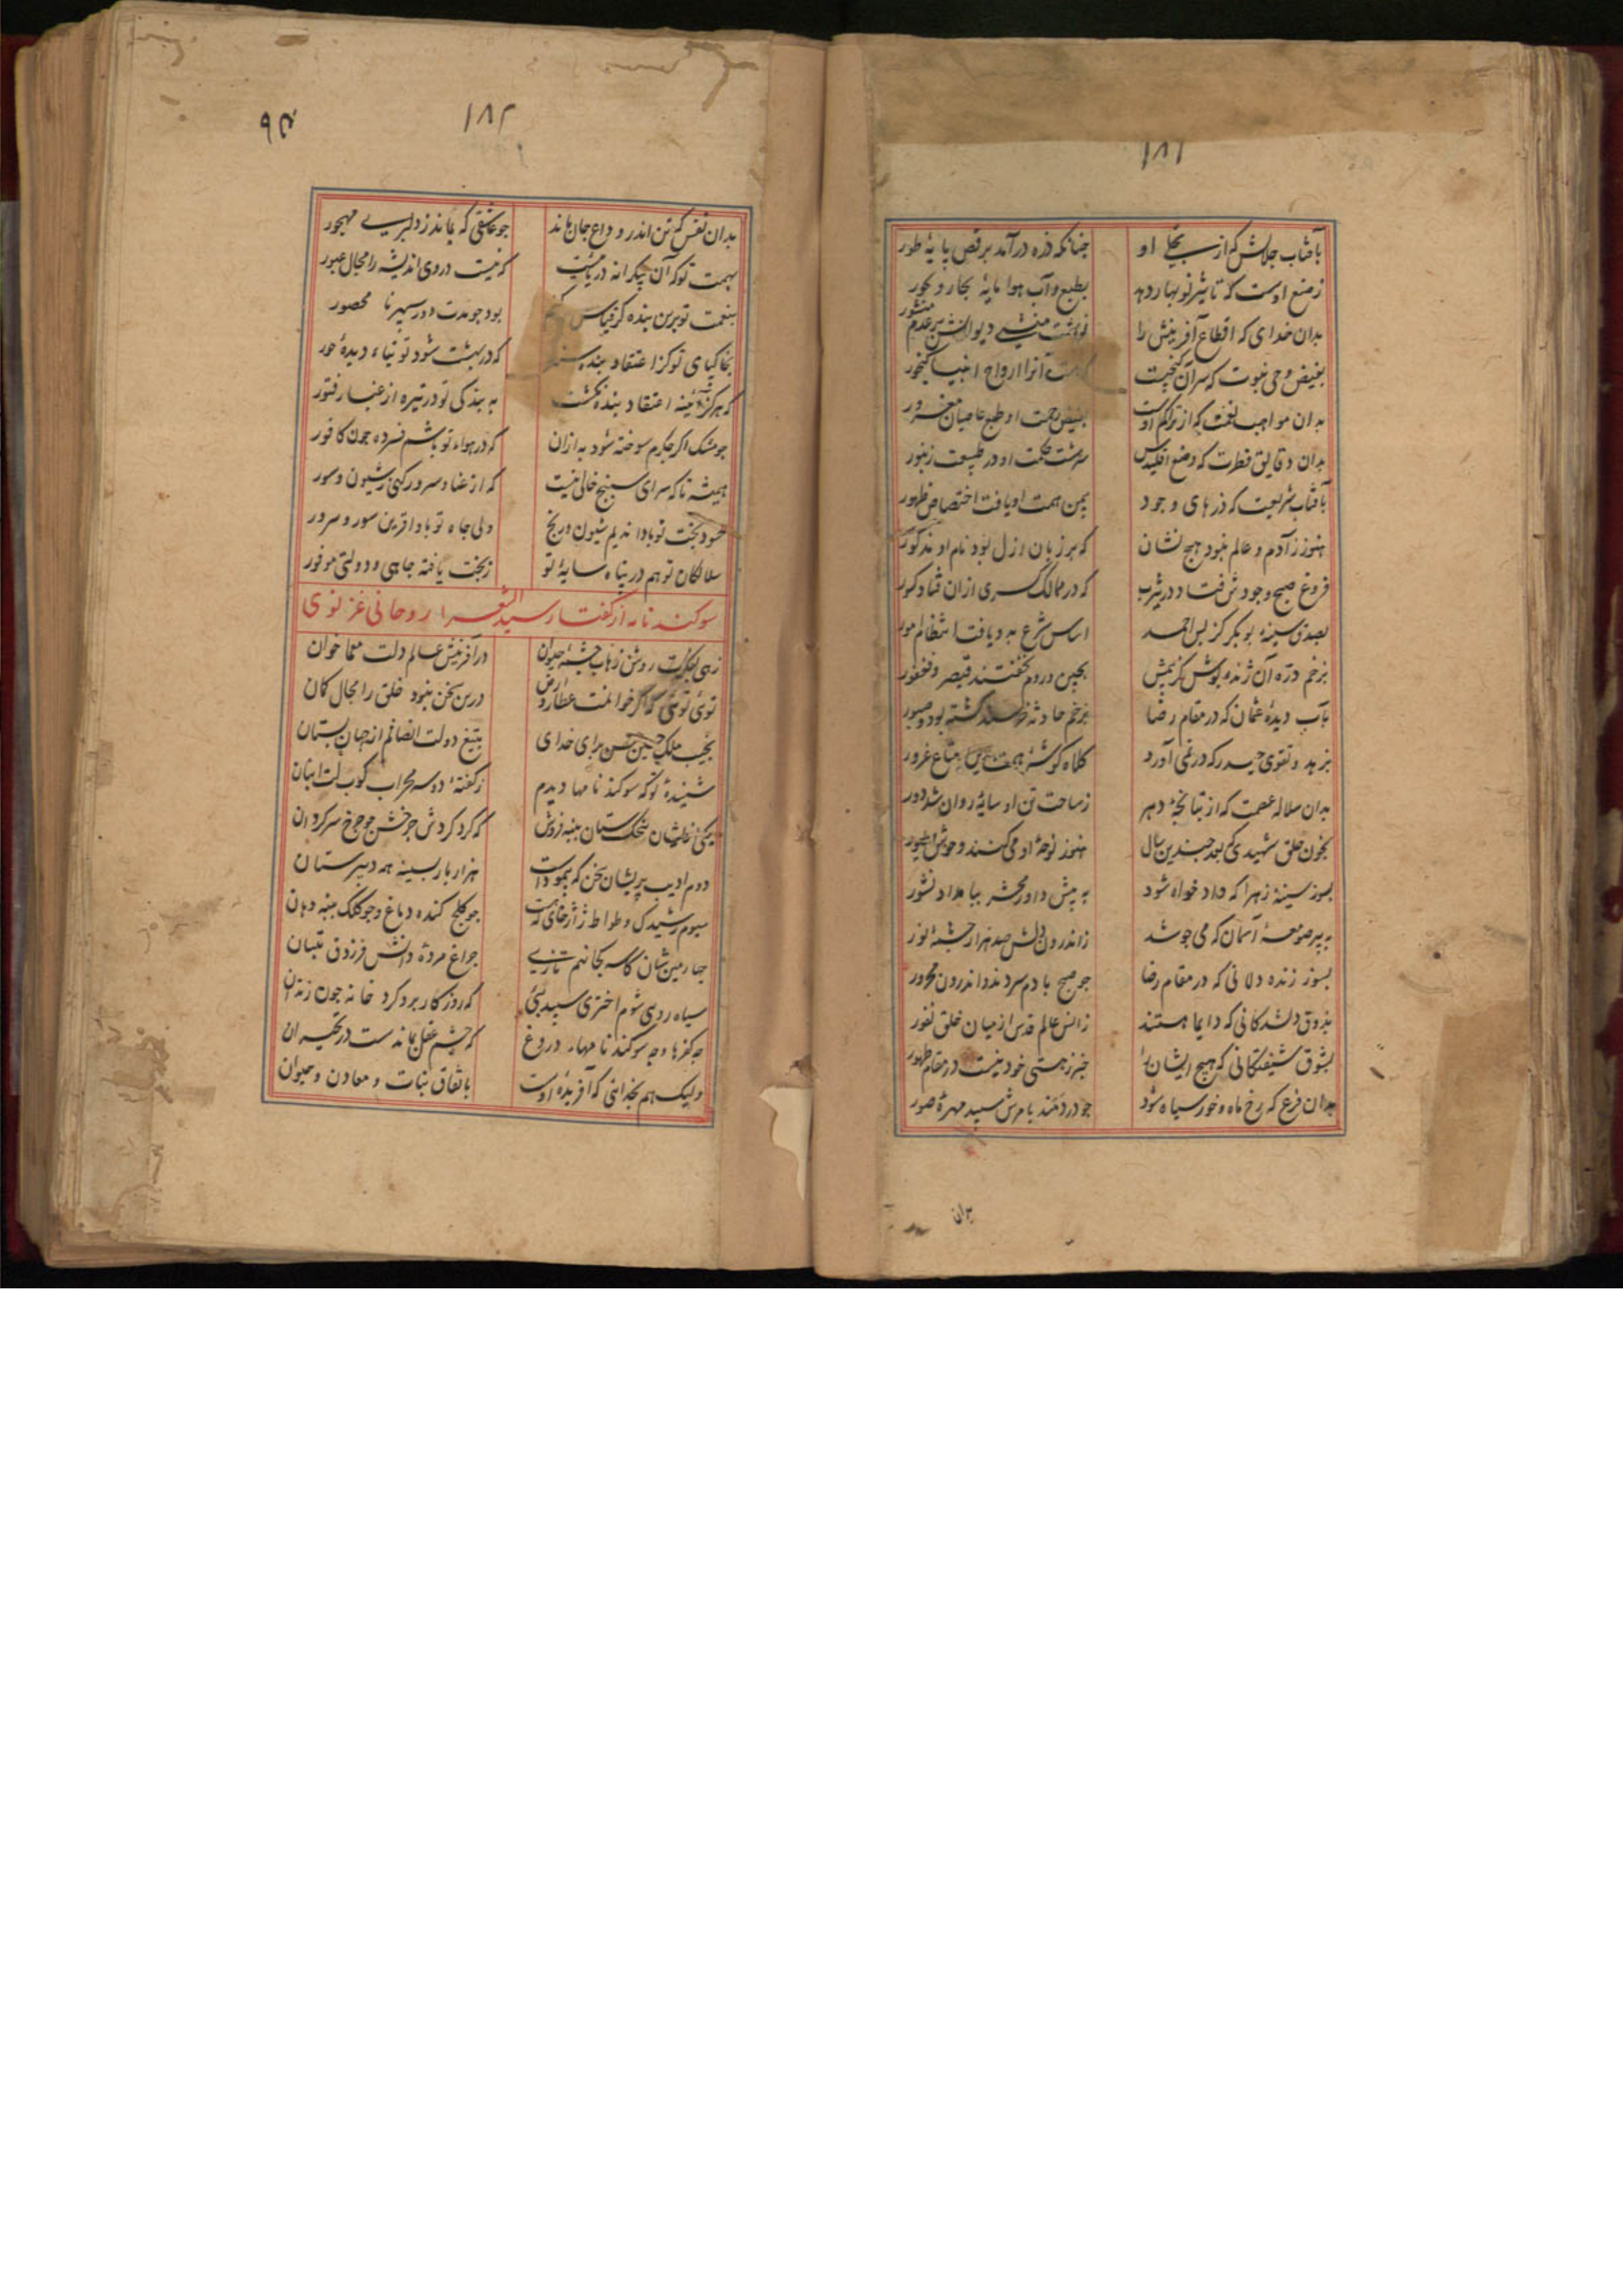 ۱۸۱
بآفتاب جلالش که از تجلی او چنانکه ذره درآمد برقص پایهٔ طور
ز صنع اوست که تاثیر نوبهار دهد بطبع و آب هوا مایهٔ بخار و بخور
بدان خدای که اقطاع آفرینش را نوشت منشی دیوانش بر عدم منشور
بفیض وحی نبوت که سر آن گنجیست که هست آنرا ارواح انبیا گنجور
بدان مواهب نعمت که از تراکم اوست بفیض رحمت او طبع عاصیان مغرور
بدان دقایق فطرت که وضع اقلیدس سرشت حکمت او در طبیعت زنبور
بآفتاب شریعت که ذرهای وجود بیمن همت او یافت اختصاص ظهور
هنوز ز آدم و عالم نبود هیچ نشان که بر زبان ازل بود نام او مذکور
فروغ صبح وجودش فتاد در یثرب که در ممالک کسری ازان فتاد کور
بصدق سینهٔ بوبکر کز پس احمد اساس شرع بدو یافت انتظام امور
بزخم درهٔ آن ژنده پوش کز بیمش بچین و روم نخفتند قیصر و فغفور
بآب دیدهٔ عثمان که در مقام رضا بزخم حادثه خرسند گشته بود و صبور
بزهد و تقوی حیدر که در نمی آورد کلاه گوشهٔ همت بدین متاع غرور
بدان سلالهٔ عصمت که از تپانچهٔ دهر ز ساحت تن او سایهٔ روان شد دور
بخون حلق شهیدی که بعد چندین سال هنوز نوحهٔ او می کنند وحوش و طیور
بسوز سینهٔ زهرا که داد خواه شود به پیش داور محشر ببامداد نشور
به پیر صومعهٔ آسمان که می جوشد ز اندرون دلش صد هزار چشمهٔ نور
بسوز زنده دلانی که در مقام رضا چو صبح با دم سردند و اندرون محرور
بذوق دلشدکانی که دایما هستند ز انس عالم قدس از میان خلق نفور
بشوق شیفتکانی که هیچ ایشان را خبر ز هستی خود نیست در مقام ظهور
بدان فزع که رخ ماه و خور سیاه شود چو در دمند بامرش سپید مهرهٔ صور
بدان
۱۸۲
۹۵
بدان نفس که تن اندر وداع جان ماند چو عاشقی که بماند ز دلبری مهجور
بهمت تو که آن بیکرانه دریائیست که نیست در وی اندیشه را مجال عبور
بنعمت تو برین بنده کر قیاس کنم بود چو مدت دور سپهر نا محصور
بخاکپای تو کز اعتقاد بنده سزد که در بهشت شود توتیاء دیدهٔ حور
که هرکز آینه اعتقاد بنده نکشت به بندکی تو در تیره از غبار فتور
چو مشک اکر جکرم سوخته شود به ازان که در هواء تو باشم فسرده چون کافور
همیشه تا که سرای سپنج خالی نیست که از عنا و سرور کهی ز شیون و سور
حسود بخت تو بادا ندیم شیون و رنج ولی جاه تو بادا قرین سور و سرور
سلالکان تو هم در پناه سایهٔ تو ز بخت یافته جاهی و دولتی موفور
سوکند نامه از گفتار سید الشعرا روحانی غزنوی
زهی بفکرت روشن زهاب چشمهٔ حیوان در آفرینش عالم دلت معما خوان
توی توئی که اگر خوانمت عطارد ارض درین سخن نبود خلق را مجال کمان
نجیب ملک حسین حسن برای خدای بتیغ دولت انصافم از جهان بستان
شنیدهٔ تو که سوکند نامها دیدم ز گفتهٔ دو سه محراب کوب لت انبان
یکی نظامیشان خشک ستان پنبه فروش که کرد کردش چرخش چو چرخ سرکردان
دوم ادیب پریشان سخن که بنمودست هزار بار بسینه همه دبیرستان
سیوم رشیدک وطواط ژاژخای که هست چو کلج کنده دماغ و چو کلک پنبه دهان
چهارمین شان کاسه کجا نهم تازی چراغ مردهٔ دانش فرزدق تبیان
سیاه روی شوم اختری سپید بئی که روزکار برو کرد خانه چون زندان
چه کفرها و چه سوکند نامهاء دروغ که چشم عقل بماندست در تحیر ان
ولیک هم بخدائی که آفریدهٔ اوست باتفاق نبات و معادن و حیوان